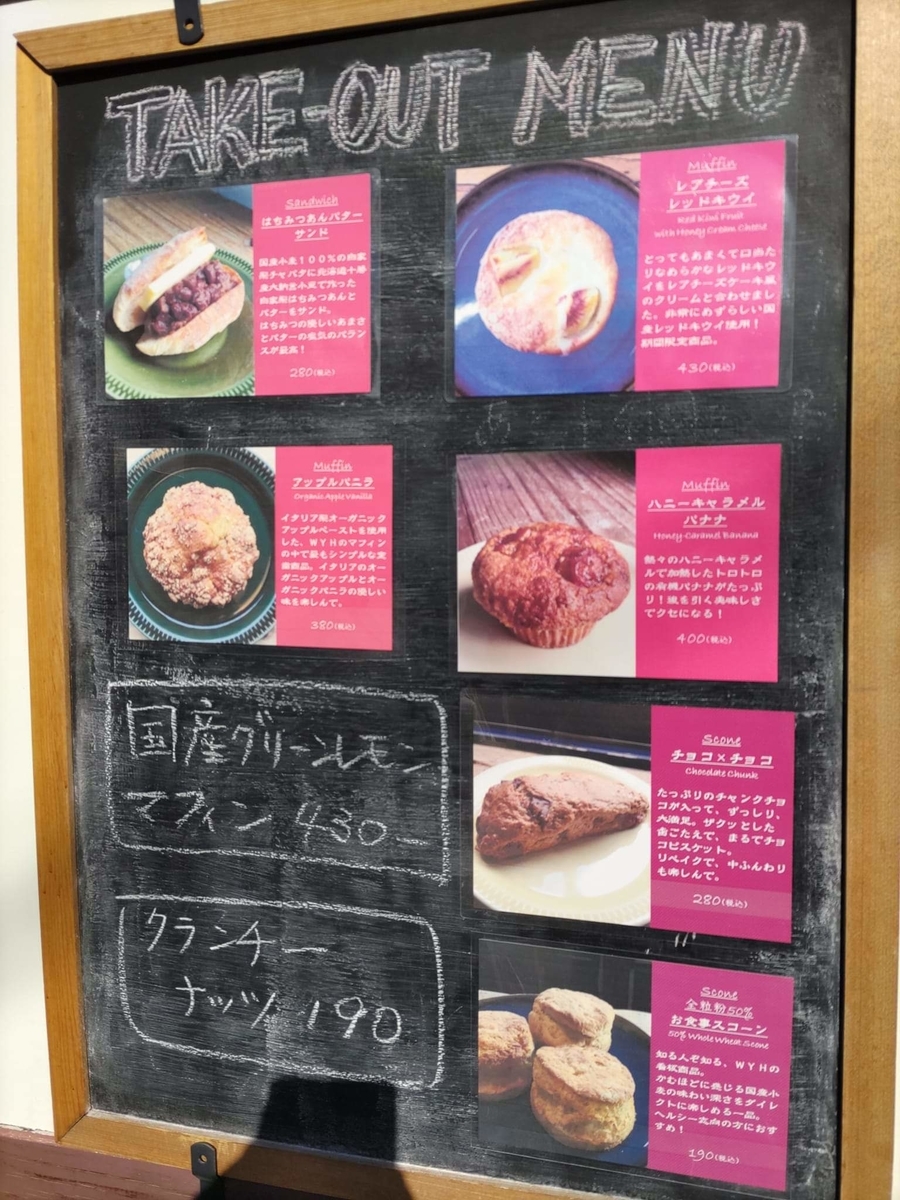 TAKE-OUT MENU
Sandwich
はちみつあんバター
サンド
国産小麦100%の自家
製チャバタに北海道十勝
産大納言小豆で作った
自家製はちみつあんと
バターをサンド。
はちみつの優しいあまさ
とバターの塩気のバラン
スが最高!
280(税込)
Muffin
レアチーズ
レッドキウイ
Red Kiwi Fruit
with Honey Cream Cheese
とってもあまくて口当た
りなめらかなレッドキウ
イをレアチーズケーキ風
のクリームと合わせまし
た。非常にめずらしい国
産レッドキウイ使用!
期間限定商品。
430(税込)
Muffin
アップルバニラ
Organic Apple Vanilla
イタリア製オーガニック
アップルペーストを使用
した、WYHのマフィン
の中で最もシンプルな定
番商品。イタリアのオー
ガニックアップルとオー
ガニックバニラの優しい
味を楽しんで。
380(税込)
Muffin
ハニーキャラメル
バナナ
Honey-Caramel Banana
熱々のハニーキャラメ
ルで加熱したトロトロ
の有機バナナがたっぷ
り!後を引く美味しさ
でクセになる!
400(税込)
国産グリーンレモン
マフィン 430-
Scone
チョコ×チョコ
Chocolate Chunk
たっぷりのチャンクチョ
コが入って、ずっしり、
大満足。ザクッとした
歯ごたえで、まるでチョ
コビスケット。
リベイクで、中ふんわり
も楽しんで。
280(税込)
クランチー
ナッツ 190
Scone
全粒粉50%
お食事スコーン
50% Whole Wheat Scone
知る人ぞ知る、WYHの
看板商品。
かむほどに感じる国産小
麦の味わい深さをダイレ
クトに楽しめる一品。
ヘルシー志向の方におす
すめ!
190(税込)